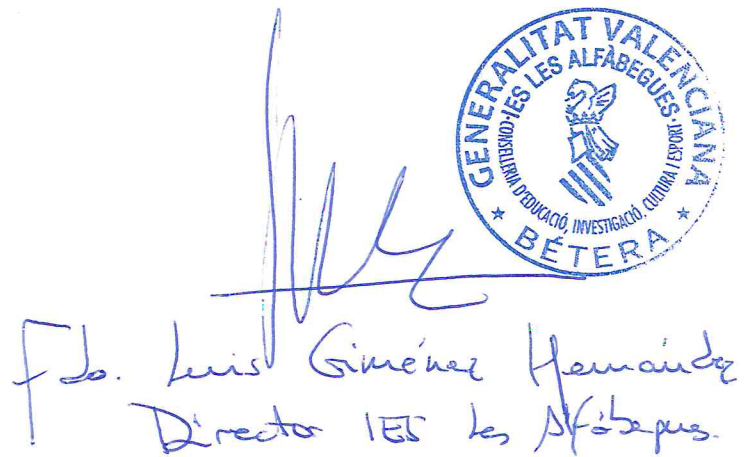 GENERALITAT VALENCIANA
·IES LES ALFÀBEGUES·
CONSELLERIA D'EDUCACIÓ, INVESTIGACIÓ, CULTURA I ESPORT
★ BÉTERA ★
Fdo. Luis Giménez Hernández
Director IES Les Alfàbegues.